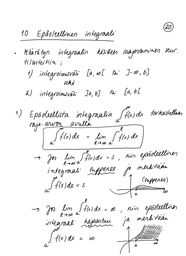 20
10 Epäoleellinen integraali
• Määrätyn integraalin käsitteen laajentaminen
tilanteisiin:
1) integroimisväli [a, ∞[ tai ]-∞, b]
2) integroimisväli ]a, b] tai [a, b[
1) Epäoleellista integraalia ∫ₐ^∞ f(x)dx tarkastellaan
raja-arvon avulla
∫ₐ^∞ f(x)dx = lim ∫ₐ f(x)dx
→ Jos lim ∫ₐ f(x)dx = s, niin epäoleellinen
integraali suppenee ja merkitään
∫ₐ^∞ f(x)dx = s
→ Jos lim ∫ₐ f(x)dx = ∞, niin epäoleellinen
integraali hajaantuu ja merkitään
∫ₐ^∞ f(x)dx = ∞